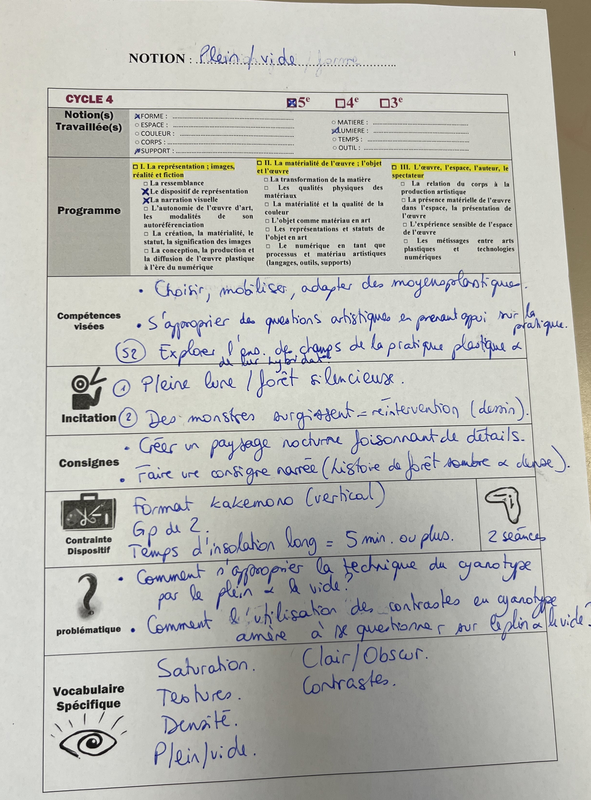 NOTION : Plein / vide
1
CYCLE 4
☒5e ☐4e ☐3e
Notion(s)
Travaillée(s)
FORME :
ESPACE :
COULEUR :
CORPS :
SUPPORT :
MATIERE :
LUMIERE :
TEMPS :
OUTIL :
Programme
I. La représentation ; images,
réalité et fiction
La ressemblance
Le dispositif de représentation
La narration visuelle
L'autonomie de l'œuvre d'art,
les modalités de son
autoréférenciation
La création, la matérialité, le
statut, la signification des images
La conception, la production et
la diffusion de l'œuvre plastique
à l'ère du numérique
II. La matérialité de l'œuvre ; l'objet
et l'œuvre
La transformation de la matière
Les qualités physiques des
matériaux
La matérialité et la qualité de la
couleur
L'objet comme matériau en art
Les représentations et statuts de
l'objet en art
Le numérique en tant que
processus et matériau artistiques
(langages, outils, supports)
III. L'œuvre, l'espace, l'auteur, le
spectateur
La relation du corps à la
production artistique
La présence matérielle de l'œuvre
dans l'espace, la présentation de
l'œuvre
L'expérience sensible de l'espace
de l'œuvre
Les métissages entre arts
plastiques et technologies
numériques
Compétences
visées
• Choisir, mobiliser, adapter des moyens plastiques.
• S'approprier des questions artistiques en prenant appui sur la
pratique.
S2 Explorer l'ens. de champs de la pratique plastique &
de leur hybridation
Incitation
1 Pleine lune / forêt silencieuse.
2 Des monstres surgissent = réintervention (dessin).
Consignes
• Créer un paysage nocturne foisonnant de détails.
• Faire une consigne narrée (histoire de forêt sombre & dense).
Contrainte
Dispositif
Format kakemono (vertical)
Gp de 2.
Temps d'insolation long = 5 min. ou plus.
2 séances
problématique
• Comment s'approprier la technique du cyanotype
par le plein & le vide?
• Comment l'utilisation des contrastes en cyanotype
amène à se questionner sur le plin & le vide?
Vocabulaire
Spécifique
Saturation.
Textures.
Densité.
Plein/vide.
Clair/Obscur.
Contrastes.